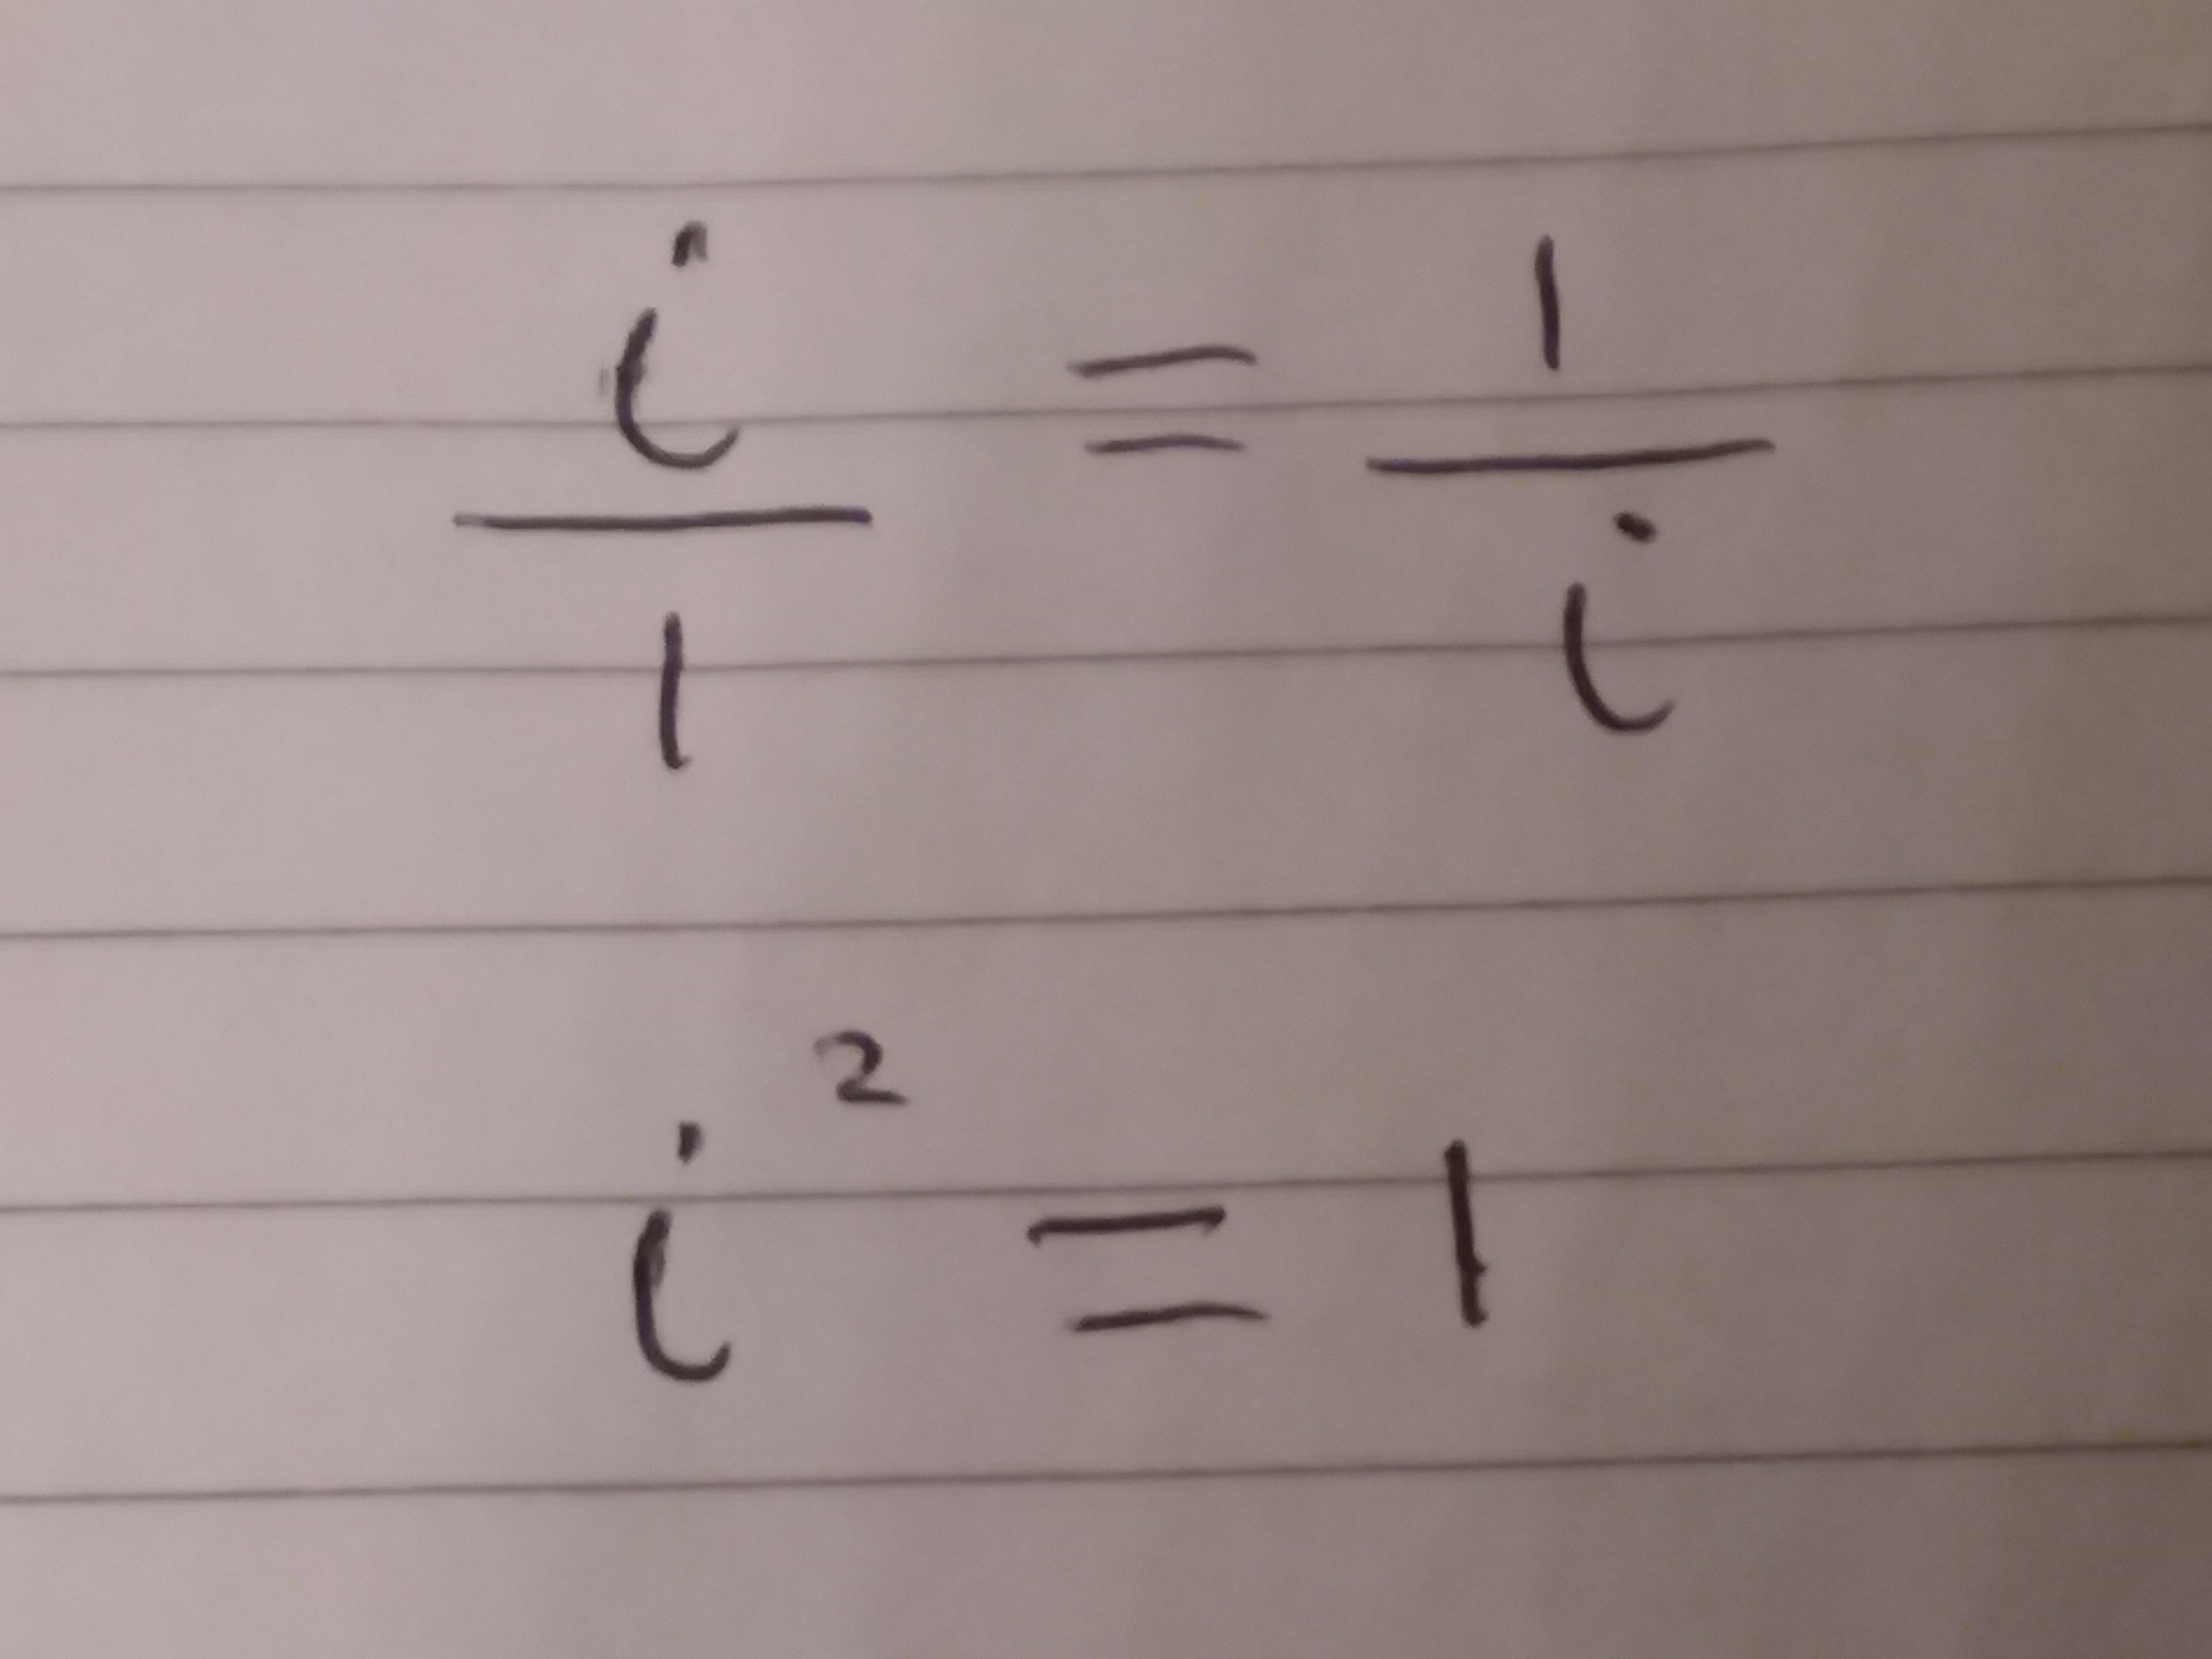 i/1 = 1/i
i² = 1